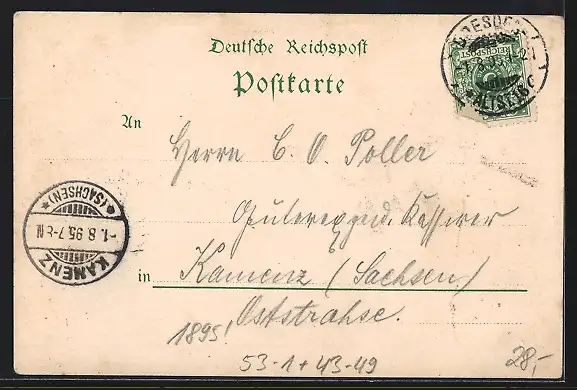 DRESDEN
REICHSPOST
8.95
ALTST.16c
Deutsche Reichspost
Postkarte
An
Herrn C. O. Poller
Kassirer
in Kamenz (Sachsen)
Oststraße.
KAMENZ
-1.8.95.7-8N
*(SACHSEN)*
1895!
53-1+43-49
28,-